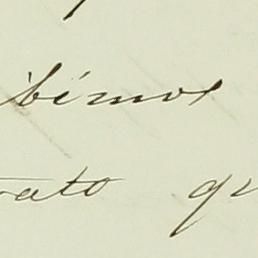 bimos
rato qu